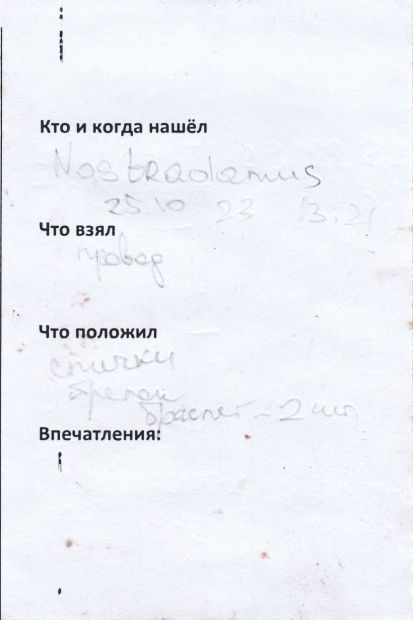 Кто и когда нашёл
Nostradamus
25.10 23 13:21
Что взял
провод
Что положил
спички
брелок
браслет - 2 шт
Впечатления: